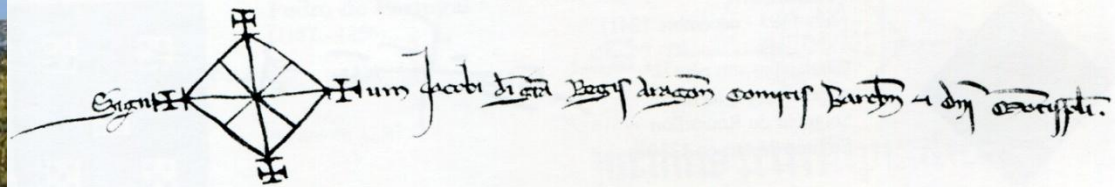 Signum Jacobi dei gra Regis Aragon Comitis Barchn & dni Montispli.